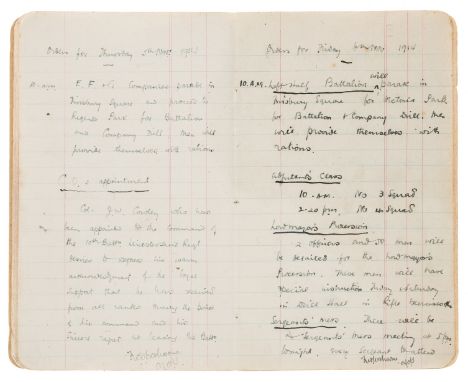 Orders for Thursday 5th Nov 1914
E. F. & G Companies parade in
Finsbury Square and proceed to
Regents Park for Battalion
and Company Drill men will
provide themselves with rations
C.O.s appointment
Col. J.W. who has
been appointed to the Command of
the 10th Battn Lincolnshire Regt
desires to express his warm
acknowledgment of the loyal
support that he has received
from all ranks during the period
of his command and his
sincere regret at leaving the Battn
Orders for Friday 6th Nov 1914
10. A.M. Left Half Battalion will parade in
Finsbury Square for Victoria Park
for Battalion & Company Drill. Men
will provide themselves with
rations.
Adjutants Class
10 A.M. No 3 Squad
2-20 pm. No Squad
Lord Mayors Procession
2 officers and 50 men will
be detailed for the Lord Mayors
Procession. These men will have
special instruction Friday & Saturday
in Drill Hall in Rifle
Sergeants' mess. There will be
a Sergeants' mess meeting at 5 pm
tonight. Every Sergeant to attend